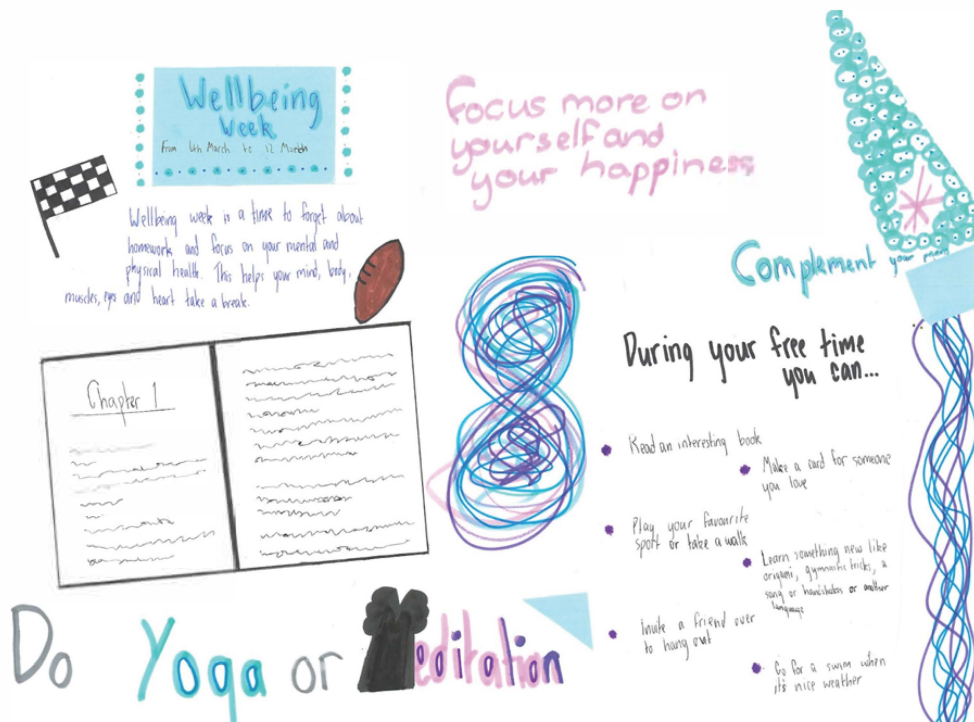 Wellbeing
Week
From 6th March to 12 March
Wellbeing week is a time to forget about
homework and focus on your mental and
physical health. This helps your mind, body,
muscles, eyes and heart take a break.
Focus more on
yourself and
your happiness
Complement your
Chapter 1
During your free time
you can...
Read an interesting book
Make a card for someone
you love
Play your favourite
sport or take a walk
Learn something new like
origami, gymnastic tricks, a
song or or another
language
Invite a friend over
to hang out
Go for a swim when
it's nice weather
Do Yoga or Meditation